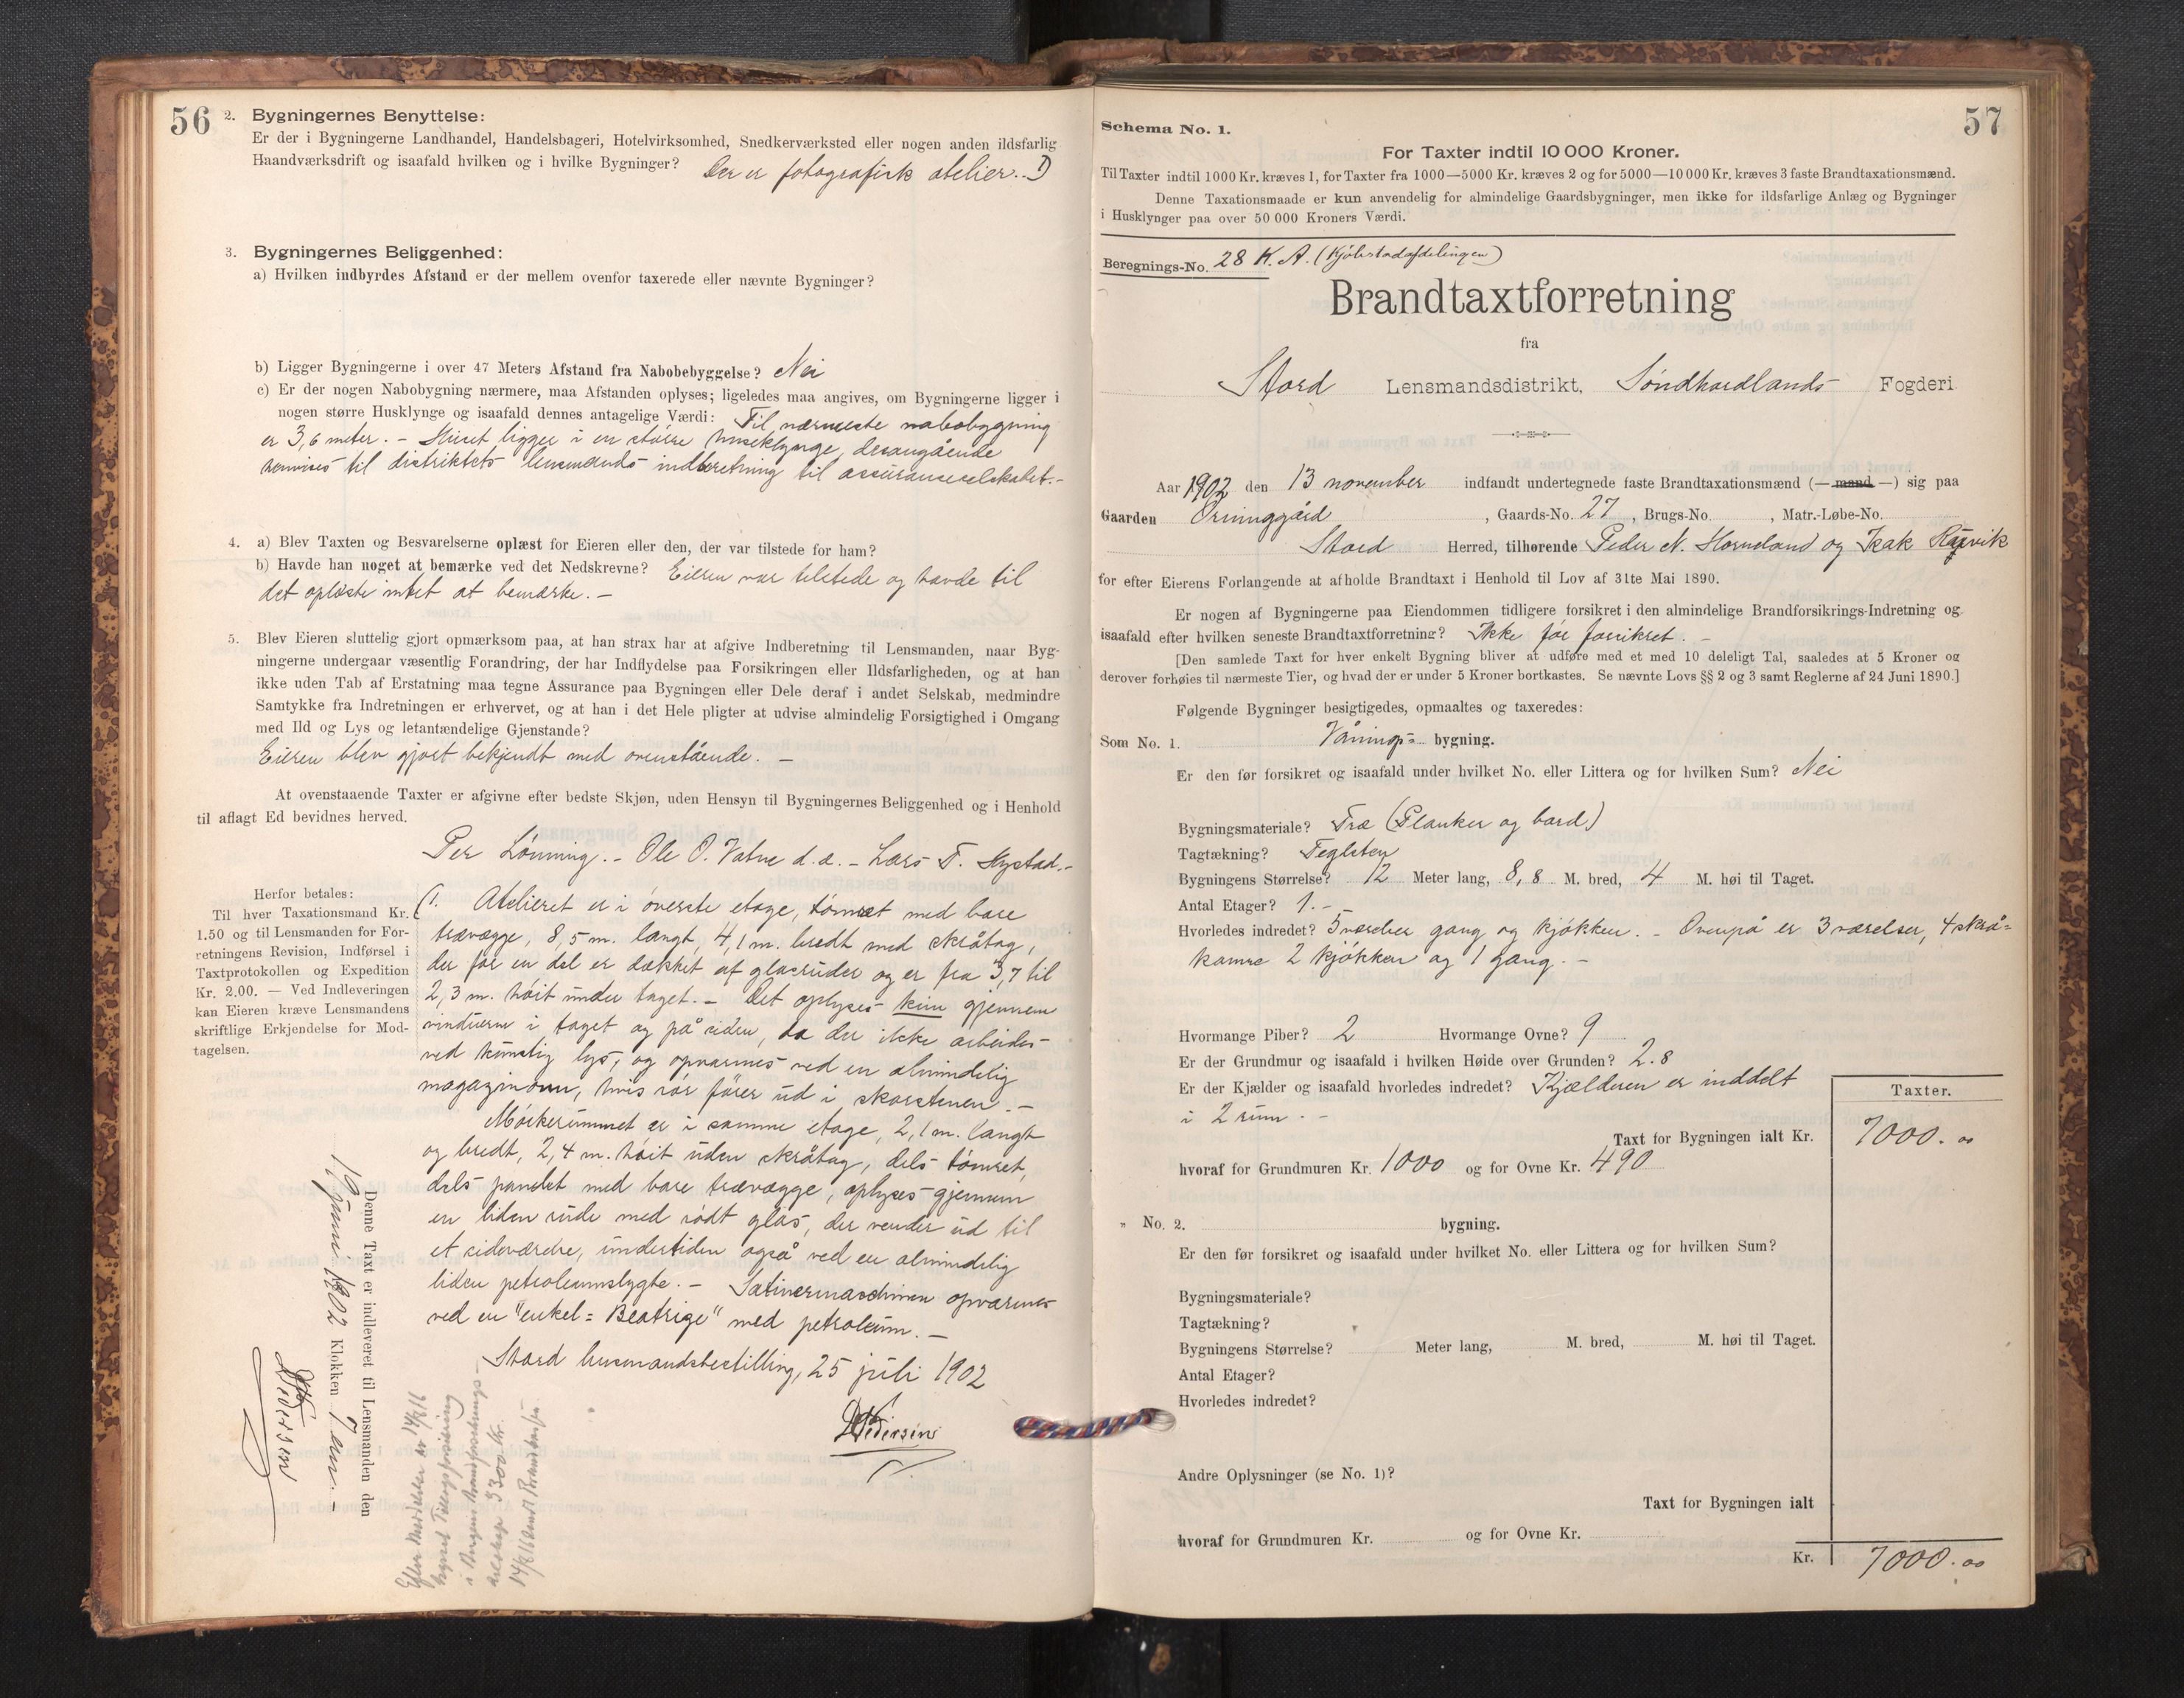 56
2. Bygningernes Benyttelse:
Er der i Bygningerne Landhandel, Handelsbageri, Hotelvirksomhed, Snedkerværksted eller nogen anden ildsfarlig
Haandværksdrift og isaafald hvilken og i hvilke Bygninger? Der er fotografisk atelier.. 1)
3. Bygningernes Beliggenhed:
a) Hvilken indbyrdes Afstand er der mellem ovenfor taxerede eller nævnte Bygninger?
b) Ligger Bygningerne i over 47 Meters Afstand fra Nabobebyggelse? Nei
c) Er der nogen Nabobygning nærmere, maa Afstanden oplyses; ligeledes maa angives, om Bygningerne ligger i
nogen større Husklynge og isaafald dennes antagelige Værdi: Til nærmeste nabobygning
er 3,6 meter. – Huset ligger i en større huseklynge, desangående
henvises til distriktets lensmands indberetning til assuranceselskabet.–
4. a) Blev Taxten og Besvarelserne oplæst for Eieren eller den, der var tilstede for ham?
b) Havde han noget at bemærke ved det Nedskrevne? Eieren var tilstede og havde til
det oplæste intet at bemærke. –
5. Blev Eieren sluttelig gjort opmærksom paa, at han strax har at afgive Indberetning til Lensmanden, naar Byg-
ningerne undergaar væsentlig Forandring, der har Indflydelse paa Forsikringen eller Ildsfarligheden, og at han
ikke uden Tab af Erstatning maa tegne Assurance paa Bygningen eller Dele deraf i andet Selskab, medmindre
Samtykke fra Indretningen er erhvervet, og at han i det Hele pligter at udvise almindelig Forsigtighed i Omgang
med Ild og Lys og letantændelige Gjenstande?
Eieren blev gjort bekjendt med ovenstående. –
At ovenstaaende Taxter er afgivne efter bedste Skjøn, uden Hensyn til Bygningernes Beliggenhed og i Henhold
til aflagt Ed bevidnes herved.
Per Lønning. – Ole O. Vatne d.æ. – Lars T. Nystad.–
Herfor betales:
Til hver Taxationsmand Kr.
1.50 og til Lensmanden for For-
retningens Revision, Indførsel i
Taxtprotokollen og Expedition
Kr. 2.00. — Ved Indleveringen
kan Eieren kræve Lensmandens
skriftlige Erkjendelse for Mod-
tagelsen.
(1. Atelieret er i øverste etage, tømret med bare
trævægge, 8,5 m. langt, 4,1 m. bredt med skråtag,
der for en del er dækket af glasruder og er fra 3,7 til
2,3 m. høit under taget. – Det oplyses kun gjennem
vinduerne i taget og på siden, da der ikke arbeides
ved kunstig lys, og opvarmes ved en almindelig
magazinovn, hvis rør fører ud i skorstenen. –
Mørkerummet er i samme etage, 2,1 m. langt
og bredt, 2,4 m. høit uden skråtag, dels tømret,
dels panelet med bare trævægge, oplyses gjennem
en liden rude med rødt glas, der vender ud til
et sideværelse, undertiden også ved en almindelig
liden petroleumslygte. – Satinermaschinen opvarmes
ved en "enkel= Beatrige" med petroleum. –
Stord lensmandsbestilling, 25 juli 1902
Pedersen
Denne Taxt er indleveret til Lensmanden den
19 juni 1902 Klokken 7 em. –
Pedersen
Efter Meddelelse av 14/8 16
tegnet Tillægsforsikring
i Bergens Brandforsikrings
selskap 3300 Kr.
57
Schema No. 1.
For Taxter indtil 10 000 Kroner.
Til Taxter indtil 1000 Kr. kræves 1, for Taxter fra 1000—5000 Kr. kræves 2 og for 5000—10 000 Kr. kræves 3 faste Brandtaxationsmænd.
Denne Taxationsmaade er kun anvendelig for almindelige Gaardsbygninger, men ikke for ildsfarlige Anlæg og Bygninger
i Husklynger paa over 50 000 Kroners Værdi.
Beregnings-No. 28 K. A. (Kjøbstadafdelingen)
Brandtaxtforretning
fra
Stord Lensmandsdistrikt, Søndhordlands Fogderi
Aar 1902 den 13 november indfandt undertegnede faste Brandtaxationsmænd (— mand —) sig paa
Gaarden Ørninggård, Gaards-No. 27, Brugs-No. , Matr.-Løbe-No.
Stord Herred, tilhørende Peder N. Horneland og Isak Røsvik
for efter Eierens Forlangende at afholde Brandtaxt i Henhold til Lov af 31te Mai 1890.
Er nogen af Bygningerne paa Eiendommen tidligere forsikret i den almindelige Brandforsikrings-Indretning og
isaafald efter hvilken seneste Brandtaxtforretning? Ikke før forsikret. –
[Den samlede Taxt for hver enkelt Bygning bliver at udføre med et med 10 deleligt Tal, saaledes at 5 Kroner og
derover forhøies til nærmeste Tier, og hvad der er under 5 Kroner bortkastes. Se nævnte Lovs §§ 2 og 3 samt Reglerne af 24 Juni 1890.]
Følgende Bygninger besigtigedes, opmaaltes og taxeredes:
Som No. 1. Vånings- bygning.
Er den før forsikret og isaafald under hvilket No. eller Littera og for hvilken Sum? Nei
Bygningsmateriale? Træ (Planker og bord)
Tagtækning? Teglsten
Bygningens Størrelse? 12 Meter lang, 8,8 M. bred, 4 M. høi til Taget.
Antal Etager? 1. –
Hvorledes indredet? 5 værelser gang og kjøkken. – Ovenpå er 3 værelser, 4 skrå=
kamre 2 kjøkken og 1 gang. –
Hvormange Piber? 2 Hvormange Ovne? 9
Er der Grundmur og isaafald i hvilken Høide over Grunden? 2.8
Er der Kjælder og isaafald hvorledes indredet? Kjælderen er inddelt
i 2 rum. –
Taxter.
Taxt for Bygningen ialt Kr. 7000. 00
hvoraf for Grundmuren Kr. 1000 og for Ovne Kr. 490
" No. 2. bygning.
Er den før forsikret og isaafald under hvilket No. eller Littera og for hvilken Sum?
Bygningsmateriale?
Tagtækning?
Bygningens Størrelse? Meter lang, M. bred, M. høi til Taget.
Antal Etager?
Hvorledes indredet?
Andre Oplysninger (se No. 1)?
Taxt for Bygningen ialt
hvoraf for Grundmuren Kr. og for Ovne Kr.
Kr. 7000. 00